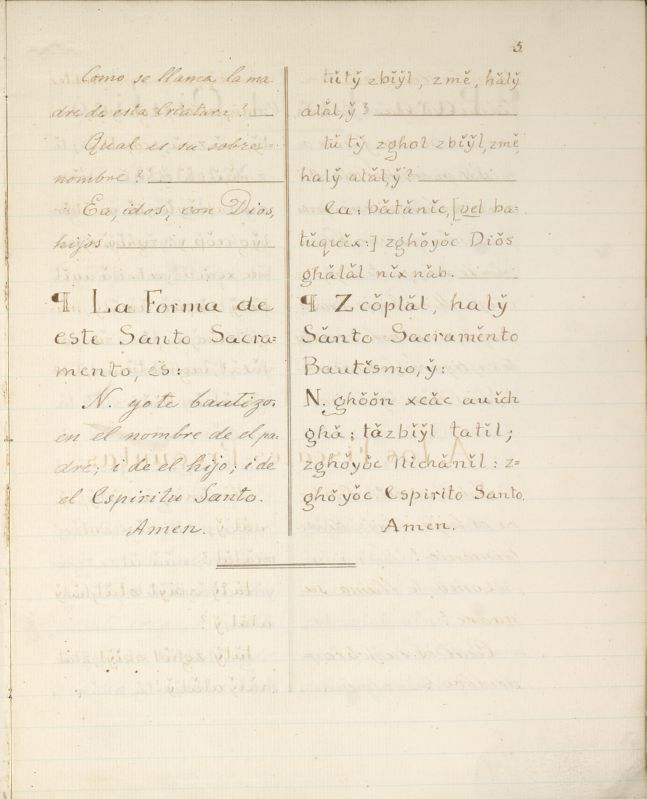 5.
Como se llama la ma
dre de esta Criatura? —
Qual es su sobre-
nombre? —
Ea, idos, con Dios,
hijos
¶ La Forma de
este Santo Sacra=
mento, es:
N. yo te bautizo.
en el nombre de el pa-
dre; i de el hijo; i de
el Espiritu Santo.
Amen.
tŭtў zbĭўl, zmĕ, hălў
alăl,ў?
tŭtў zghol zbĭўl, zmĕ
halў alăl,ў?
Ca: bătănĭc, [vel ba=
tŭquĕx:] zghŏўŏc Diŏs
ghălăl nĭx năb.
¶ Zcŏplăl, halў
Sănto Sacramĕnto
Bautĭsmo, ў:
N. ghŏŏn xcăc auich
ghă; tăzbĭўl tatil;
zghŏўŏc Nichănĭl: z=
ghŏўŏc Espirito Santo.
Amen.